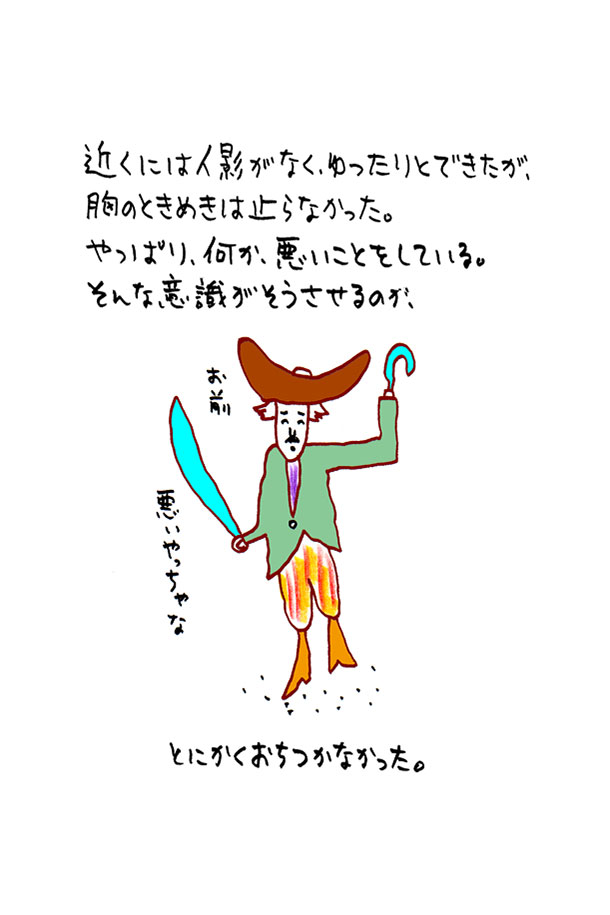 近くには人影がなく、ゆったりとできたが、
胸のときめきは止らなかった。
やっぱり、何か、悪いことをしている。
そんな意識がそうさせるのか、
お前
悪いやっちゃな
とにかくおちつかなかった。